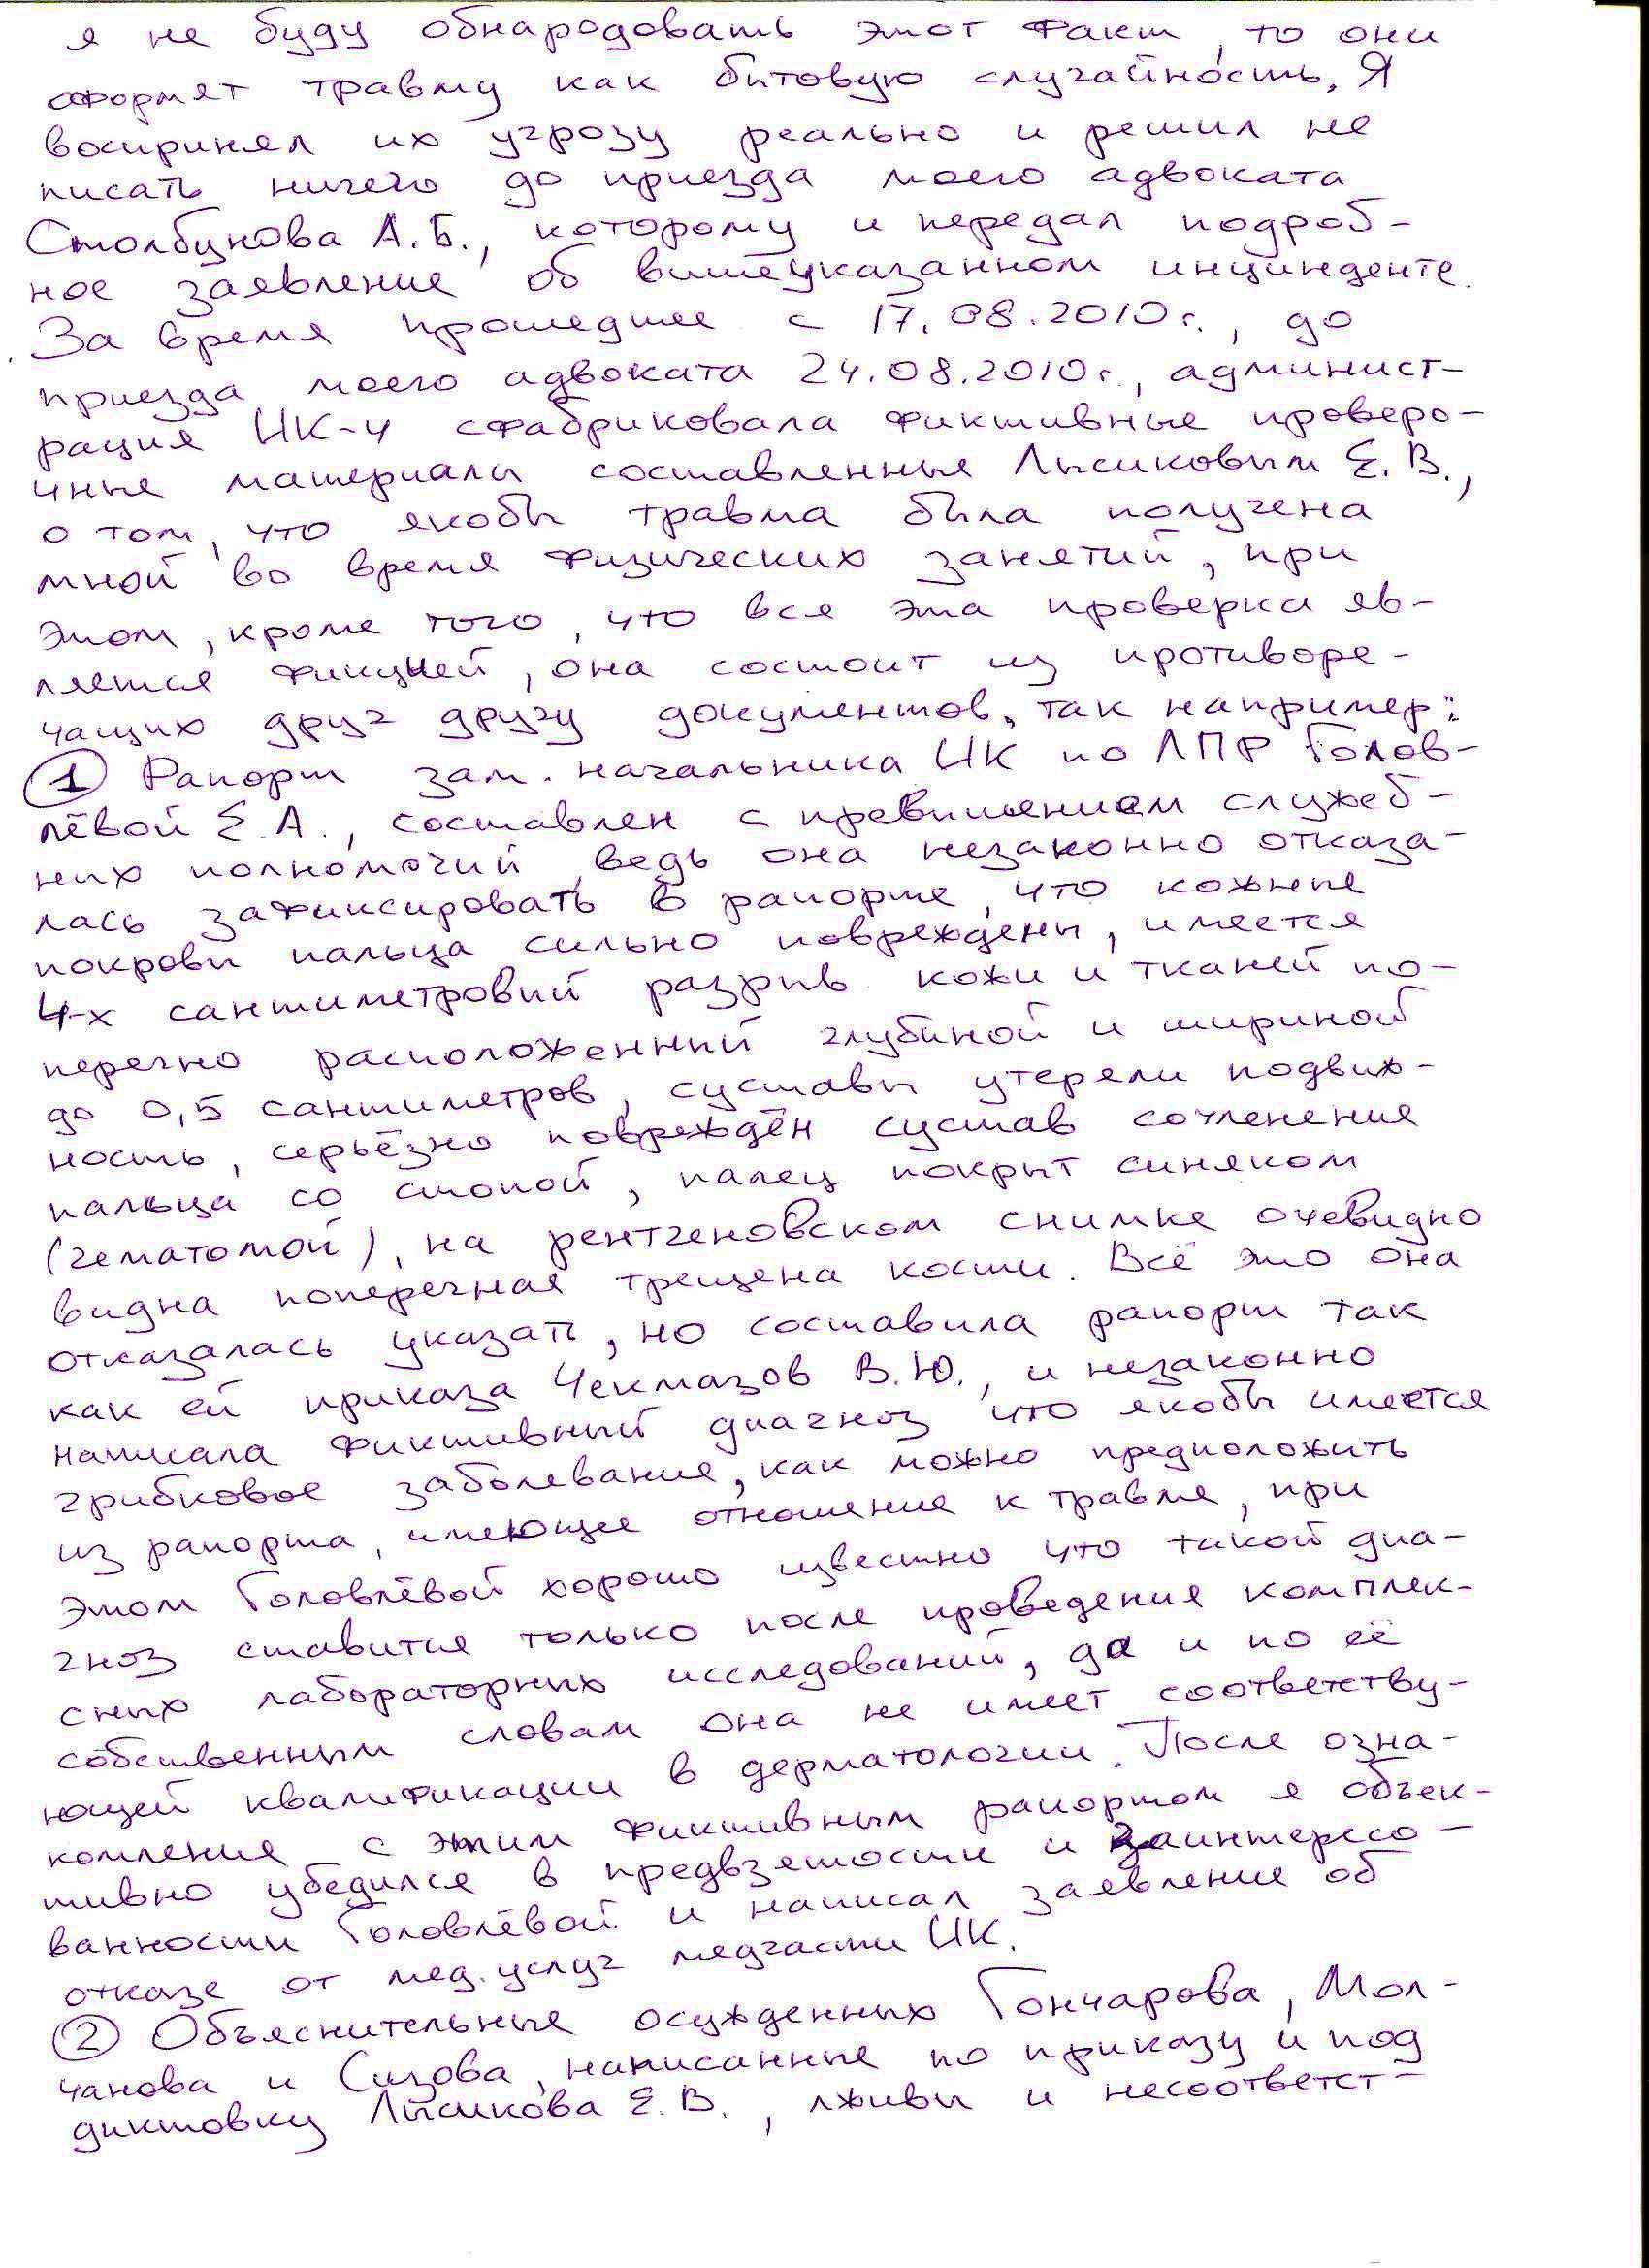 я не буду обнародовать этот факт, то они
оформят травму как бытовую случайность. Я
воспринял их угрозу реально и решил не
писать ничего до приезда моего адвоката
Столбунова А.Б., которому и передал подроб-
ное заявление об вышеуказанном инциденте.
За время прошедшее с 17.08.2010г., до
приезда моего адвоката 24.08.2010г., админист-
рация ИК-4 сфабриковала фиктивные проверо-
чные материалы составленные Лысиковым Е.В.,
о том, что якобы травма была получена
мной во время физических занятий, при
этом, кроме того, что вся эта проверка яв-
ляется фикцией, она состоит из противоре-
чащих друг другу документов, так например:
1 Рапорт зам. начальника ИК по ЛПР Голов-
лёвой Е.А., составлен с превышением служеб-
ных полномочий, ведь она незаконно отказа-
лась зафиксировать в рапорте, что кожные
покровы пальца сильно повреждены, имеется
4-х сантиметровый разрыв кожи и тканей по-
перечно расположенный глубиной и шириной
до 0,5 сантиметров, суставы утеряли подвиж-
ность, серьёзно повреждён сустав сочленения
пальца со стопой, палец покрыт синяком
(гематомой), на рентгеновском снимке очевидно
видна поперечная трещена кости. Всё это она
отказалась указать, но составила рапорт так
как ей приказа Чекмазов В.Ю., и незаконно
написала фиктивный диагноз что якобы имеется
грибковое заболевание, как можно предположить
из рапорта, имеющее отношение к травме, при
этом Головлёвой хорошо известно что такой диа-
гноз ставится только после проведения комплек-
сных лабораторных исследований, да и по её
собственным словам она не имеет соответству-
ющей квалификации в дерматологии. После озна-
комления с этим фиктивным рапортом я объек-
тивно убедился в предвзятости и заинтересо-
ванности Головлёвой и написал заявление об
отказе от мед. услуг медчасти ИК.
2 Объяснительные осужденных Гончарова, Мол-
чанова и Сизова, написанные по приказу и под
диктовку Лысикова Е.В., лживы и несоответст-